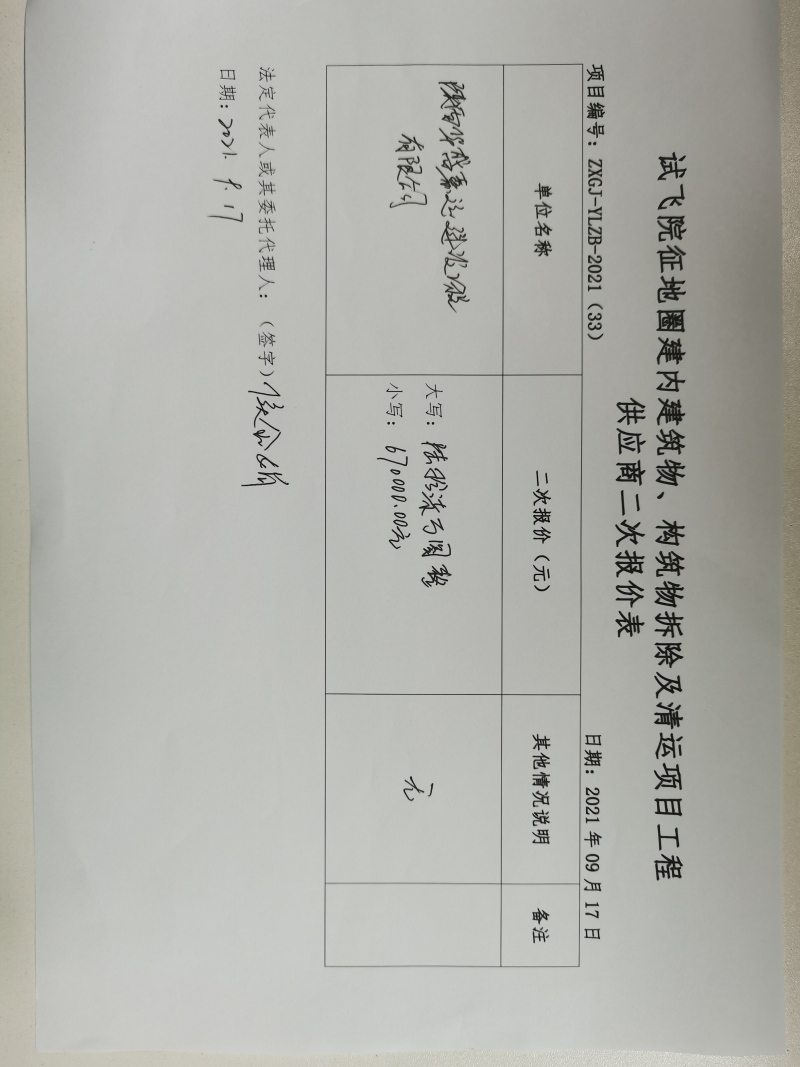 试飞院征地圈建内建筑物、构筑物拆除及清运项目工程
供应商二次报价表
项目编号：ZXGJ-YLZB-2021（33）
日期：2021年09月17日
单位名称
二次报价（元）
其他情况说明
备注
有限公司
大写：陆拾柒万圆整
小写：670000.00元
无
法定代表人或其委托代理人：（签字）
日期：2021.9.17